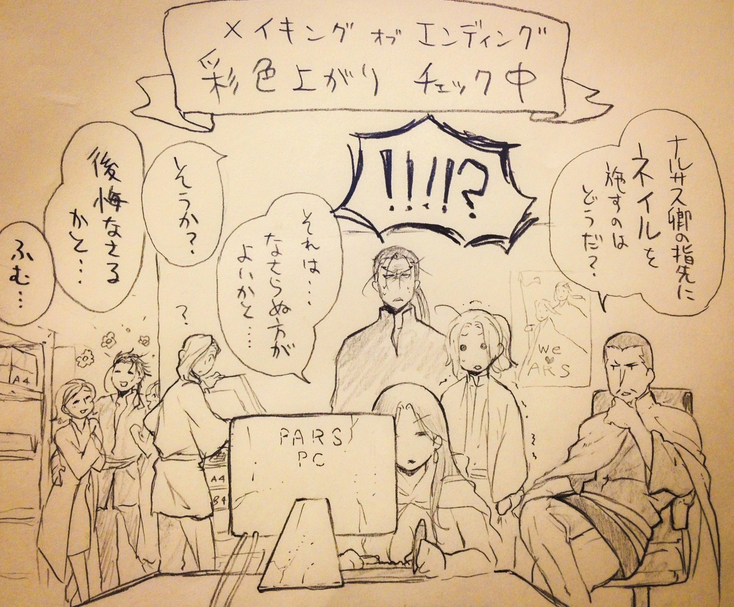 メイキング オブ エンディング
彩色上がり チェック中
ナルサス卿の指先に
ネイルを
施すのは
どうだ?
!!!!?
それは…
なさらぬ方が
よいかと…
そうか?
後悔なさる
かと…
ふむ…
?
We
♥
ARS
PARS
PC
A4
A4
B4